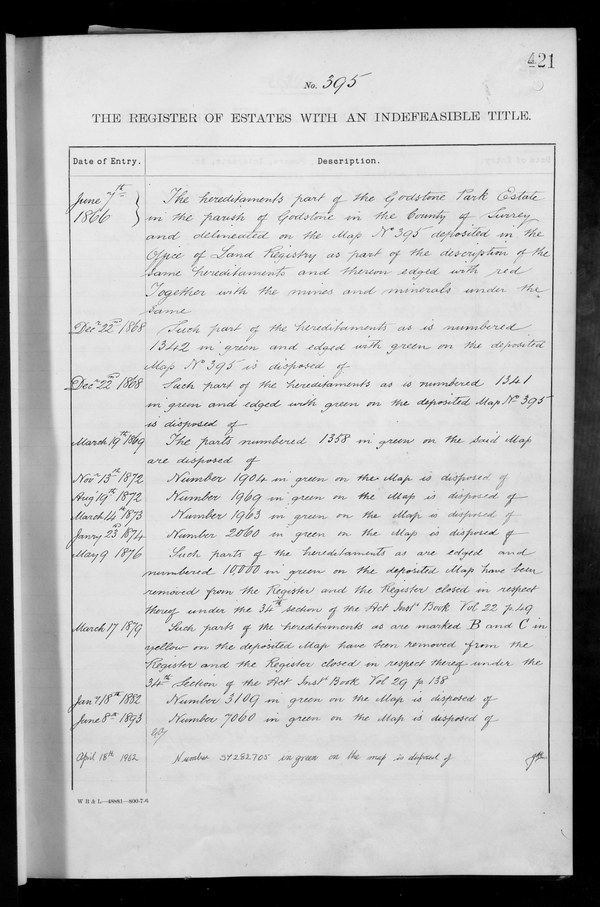 421
No. 395
THE REGISTER OF ESTATES WITH AN INDEFEASIBLE TITLE.
Date of Entry. Description.
June 7th 1866 } The hereditaments part of the Godstone Park Estate
in the parish of Godstone in the County of Surrey
and delineated on the Map No 395 deposited in the
Office of Land Registry as part of the description of the
same hereditaments and thereon edged with red
Together with the mines and minerals under the
same
Decr 22nd 1868 Such part of the hereditaments as is numbered
1342 in green and edged with green on the deposited
Map No 395 is disposed of
Decr 22nd 1868 Such part of the hereditaments as is numbered 1341
in green and edged with green on the deposited Map No 395
is disposed of
March 19th 1869 The parts numbered 1358 in green on the said Map
are disposed of
Novr 13th 1872 Number 1904 in green on the Map is disposed of
Augt 19th 1872 Number 1969 in green on the Map is disposed of
March 14th 1873 Number 1963 in green on the Map is disposed of
Janry 23rd 1874 Number 2060 in green on the Map is disposed of
May 9 1876 Such parts of the hereditaments as are edged and
numbered 10,000 in green on the deposited Map have been
removed from the Register and the Register closed in respect
thereof under the 34th section of the Act Inst. Book Vol 22 p. 49
March 17 1879 Such parts of the hereditaments as are marked B and C in
yellow on the deposited Map have been removed from the
Register and the Register closed in respect thereof under the
34th Section of the Act Inst. Book Vol 29 p. 138
Jany 18th 1882 Number 3109 in green on the Map is disposed of
June 8th 1893 Number 7060 in green on the Map is disposed of
April 18th 1962 Number SY282705 in green on the map is disposed of
W B & L—48881—800-7-6